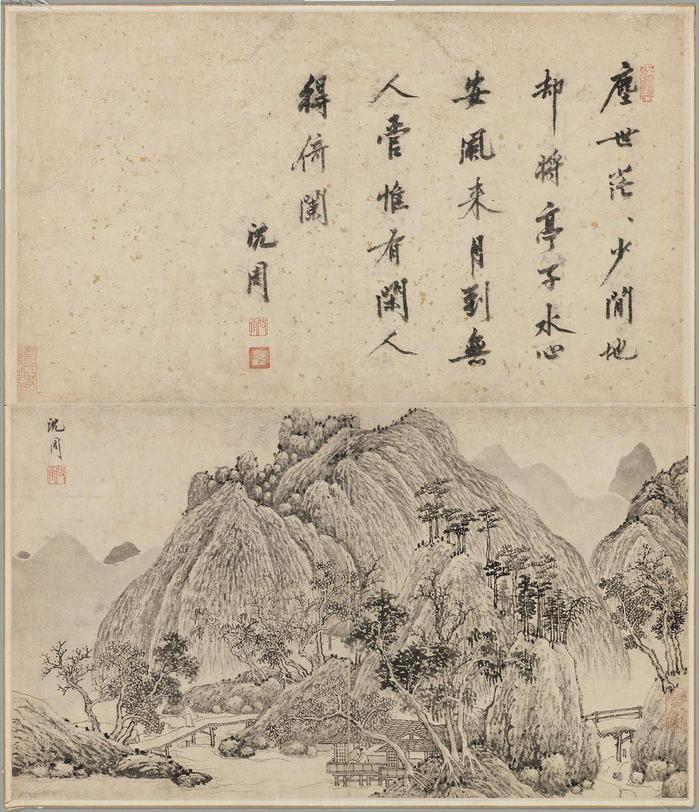 塵世茫、少閒地
却將亭子水心
安風来月到無
人管惟有閑人
得倚闌
沈周
沈周